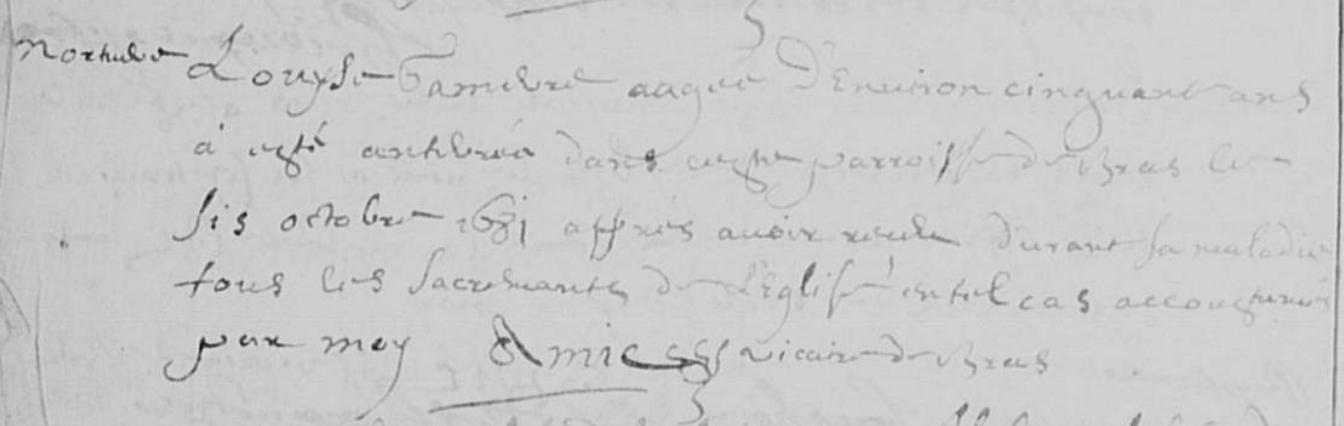 mortuere Louyse Gamevre aagée D'Environ cinquante ans
à esté antérrée dans ceste parroisse de Bras le
sis octobre 1681 apprés avoir receu durant sa maladie
tous les sacremants de l'Eglise en tel cas accoustumés
par moy Amic vicaire de Bras